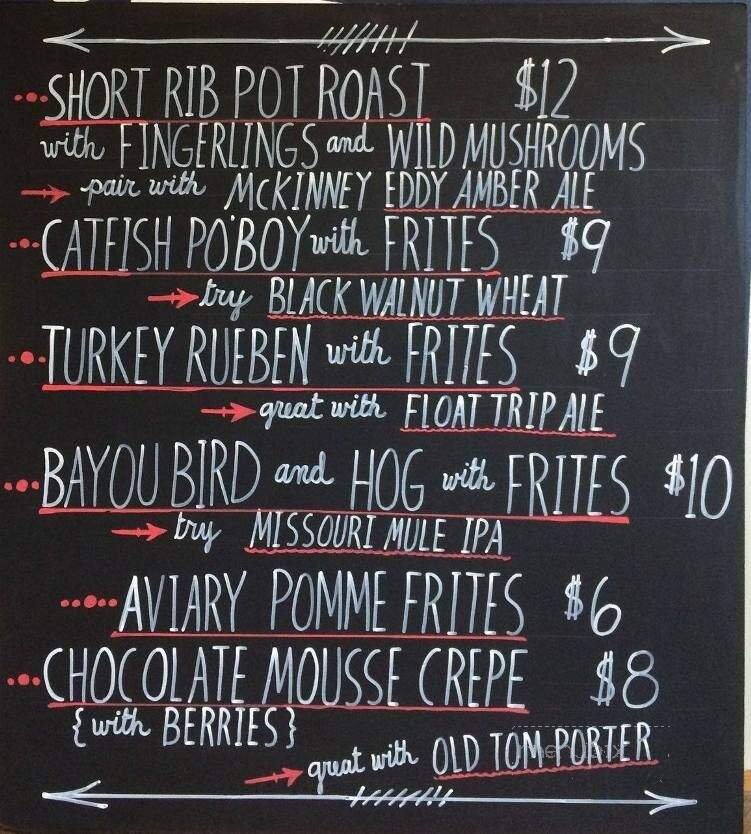 SHORT RIB POT ROAST $12
with FINGERLINGS and WILD MUSHROOMS
pair with MCKINNEY EDDY AMBER ALE
CATFISH PO'BOY with FRITES $9
try BLACK WALNUT WHEAT
TURKEY RUEBEN with FRITES $9
great with FLOAT TRIP ALE
BAYOU BIRD and HOG with FRITES $10
try MISSOURI MULE IPA
AVIARY POMME FRITES $6
CHOCOLATE MOUSSE CREPE $8
{with BERRIES}
great with OLD TOM PORTER